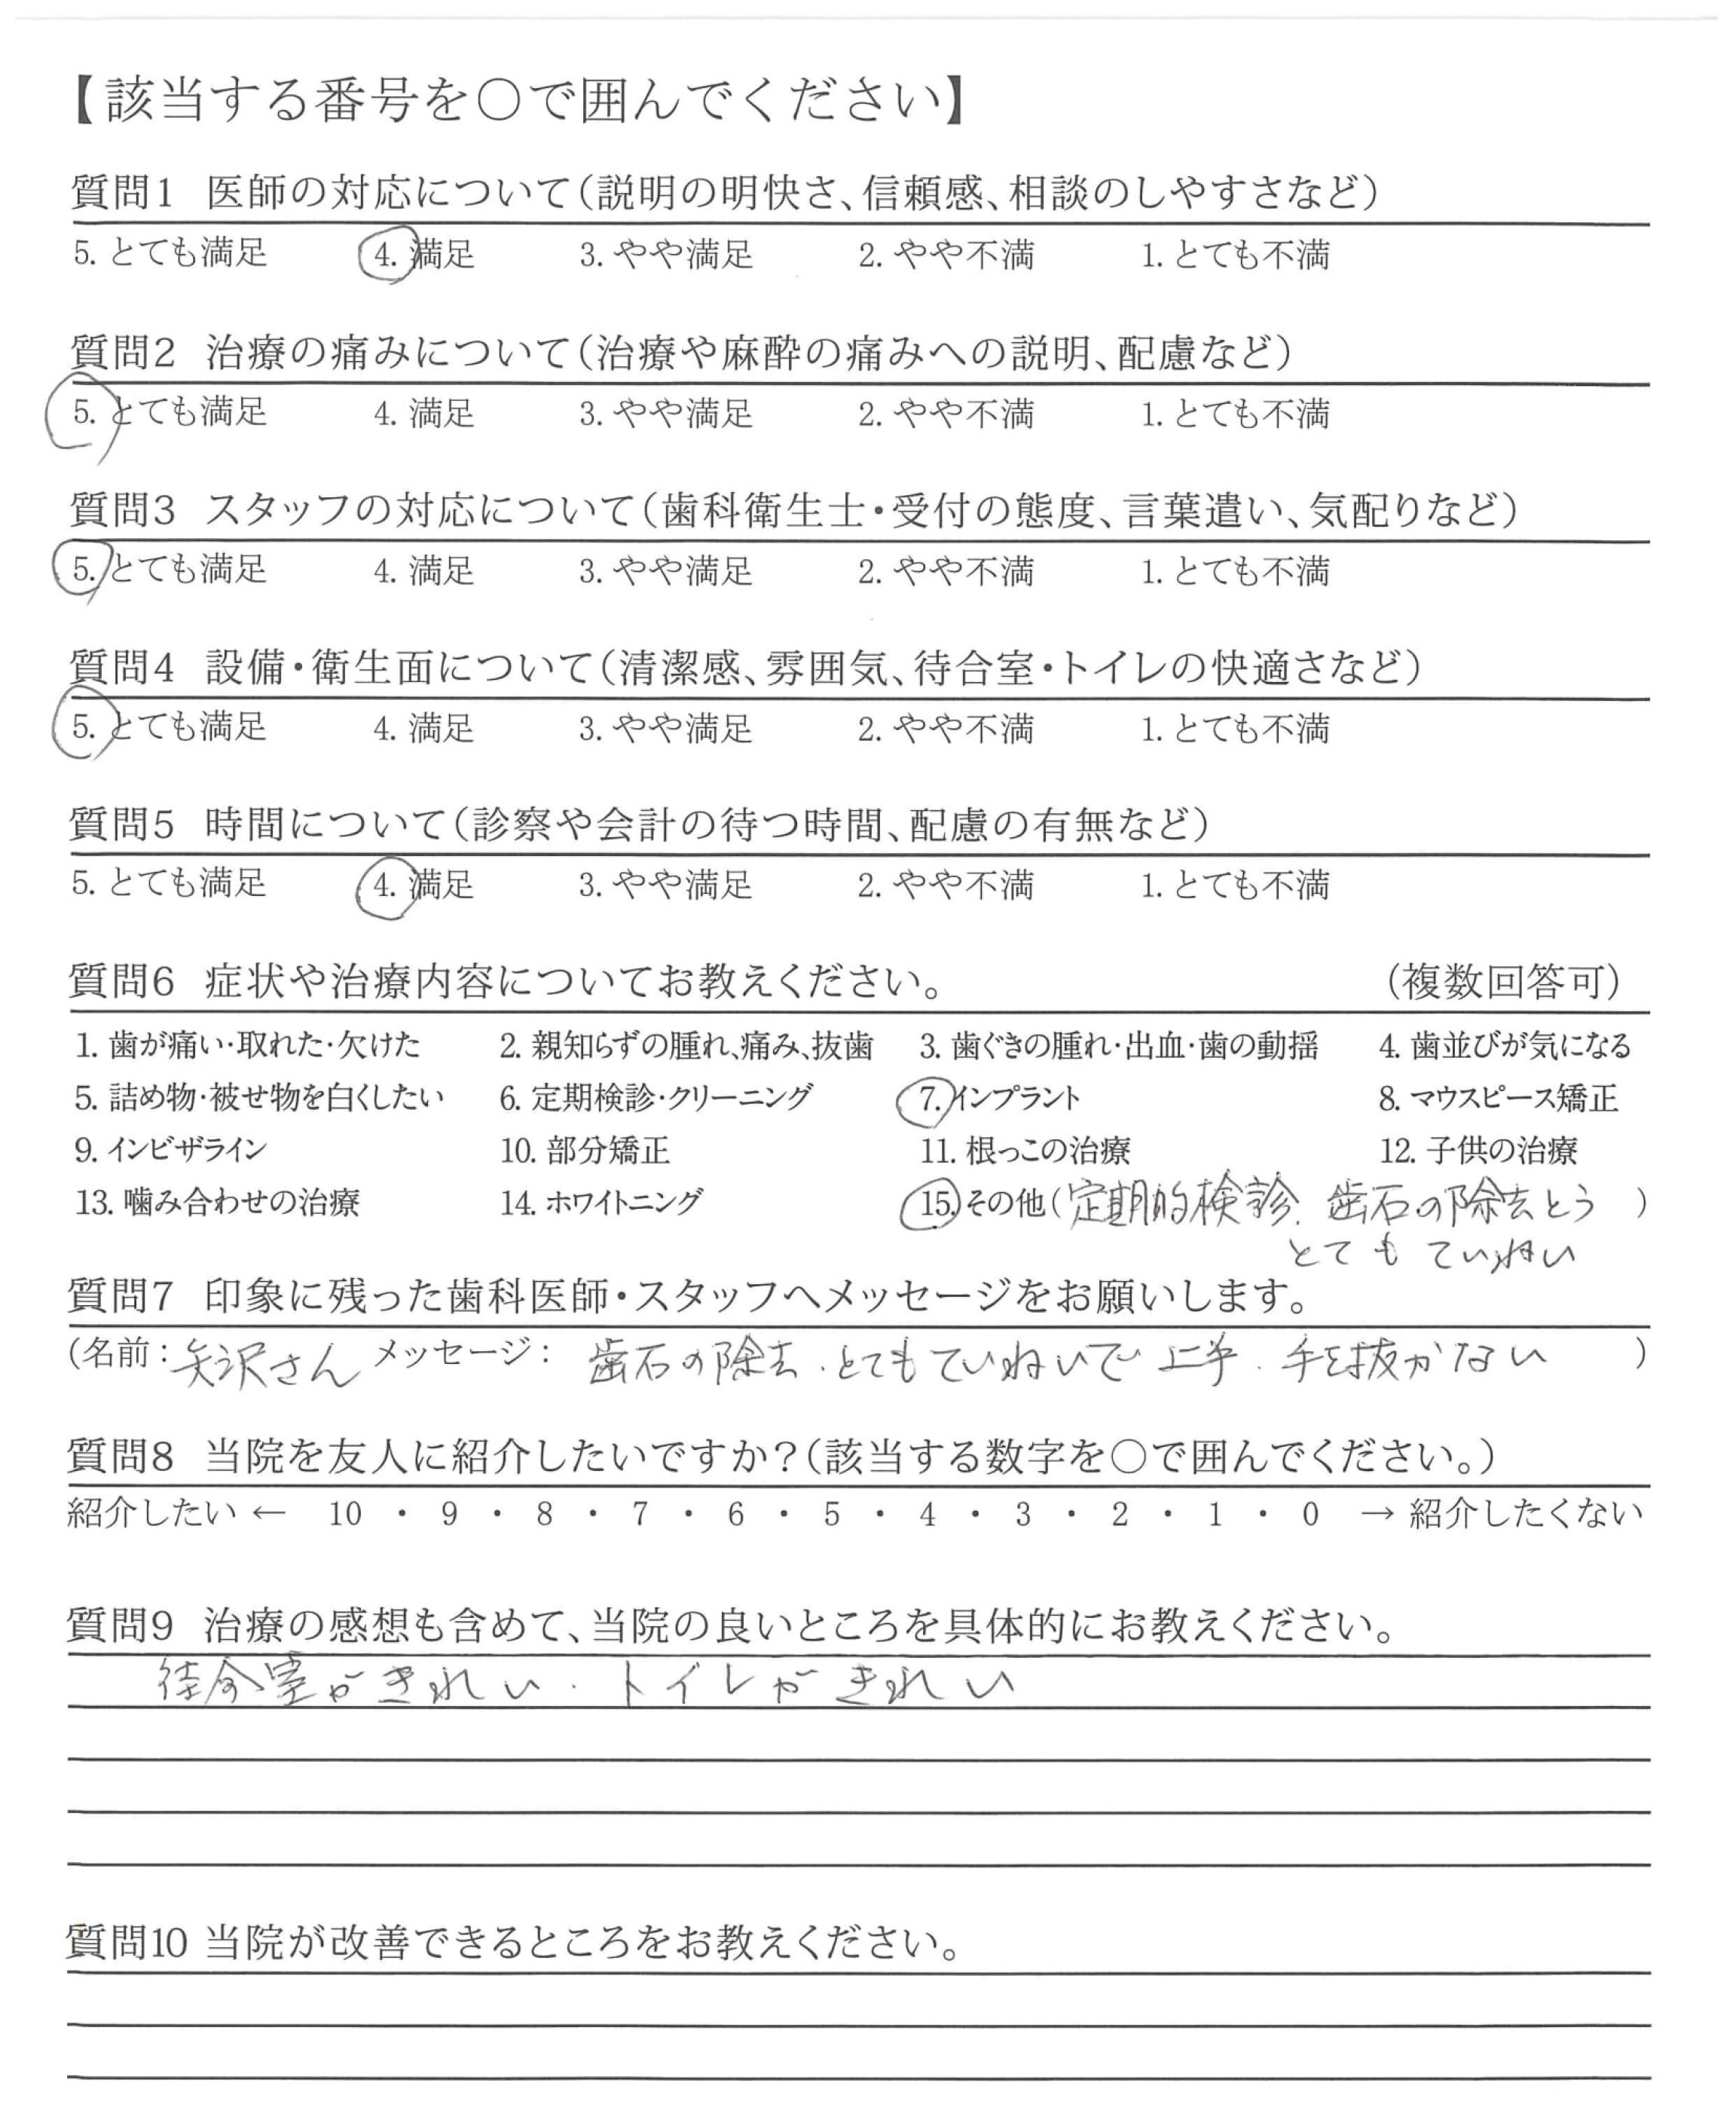 【該当する番号を○で囲んでください】
質問1 医師の対応について(説明の明快さ、信頼感、相談のしやすさなど)
5. とても満足 4. 満足 3. やや満足 2. やや不満 1. とても不満
質問2 治療の痛みについて(治療や麻酔の痛みへの説明、配慮など)
5. とても満足 4. 満足 3. やや満足 2. やや不満 1. とても不満
質問3 スタッフの対応について(歯科衛生士・受付の態度、言葉遣い、気配りなど)
5. とても満足 4. 満足 3. やや満足 2. やや不満 1. とても不満
質問4 設備・衛生面について(清潔感、雰囲気、待合室・トイレの快適さなど)
5. とても満足 4. 満足 3. やや満足 2. やや不満 1. とても不満
質問5 時間について(診察や会計の待つ時間、配慮の有無など)
5. とても満足 4. 満足 3. やや満足 2. やや不満 1. とても不満
質問6 症状や治療内容についてお教えください。 (複数回答可)
1. 歯が痛い・取れた・欠けた 2. 親知らずの腫れ、痛み、抜歯 3. 歯ぐきの腫れ・出血・歯の動揺 4. 歯並びが気になる
5. 詰め物・被せ物を白くしたい 6. 定期検診・クリーニング 7. インプラント 8. マウスピース矯正
9. インビザライン 10. 部分矯正 11. 根っこの治療 12. 子供の治療
13. 噛み合わせの治療 14. ホワイトニング 15. その他(定期的検診、歯石の除去とう)
とても ていねい
質問7 印象に残った歯科医師・スタッフへメッセージをお願いします。
(名前:矢沢さん メッセージ: 歯石の除去、とてもていねいで上手、手を抜かない)
質問8 当院を友人に紹介したいですか?(該当する数字を○で囲んでください。)
紹介したい ← 10 ・ 9 ・ 8 ・ 7 ・ 6 ・ 5 ・ 4 ・ 3 ・ 2 ・ 1 ・ 0 → 紹介したくない
質問9 治療の感想も含めて、当院の良いところを具体的にお教えください。
待合室がきれい、トイレがきれい
質問10 当院が改善できるところをお教えください。